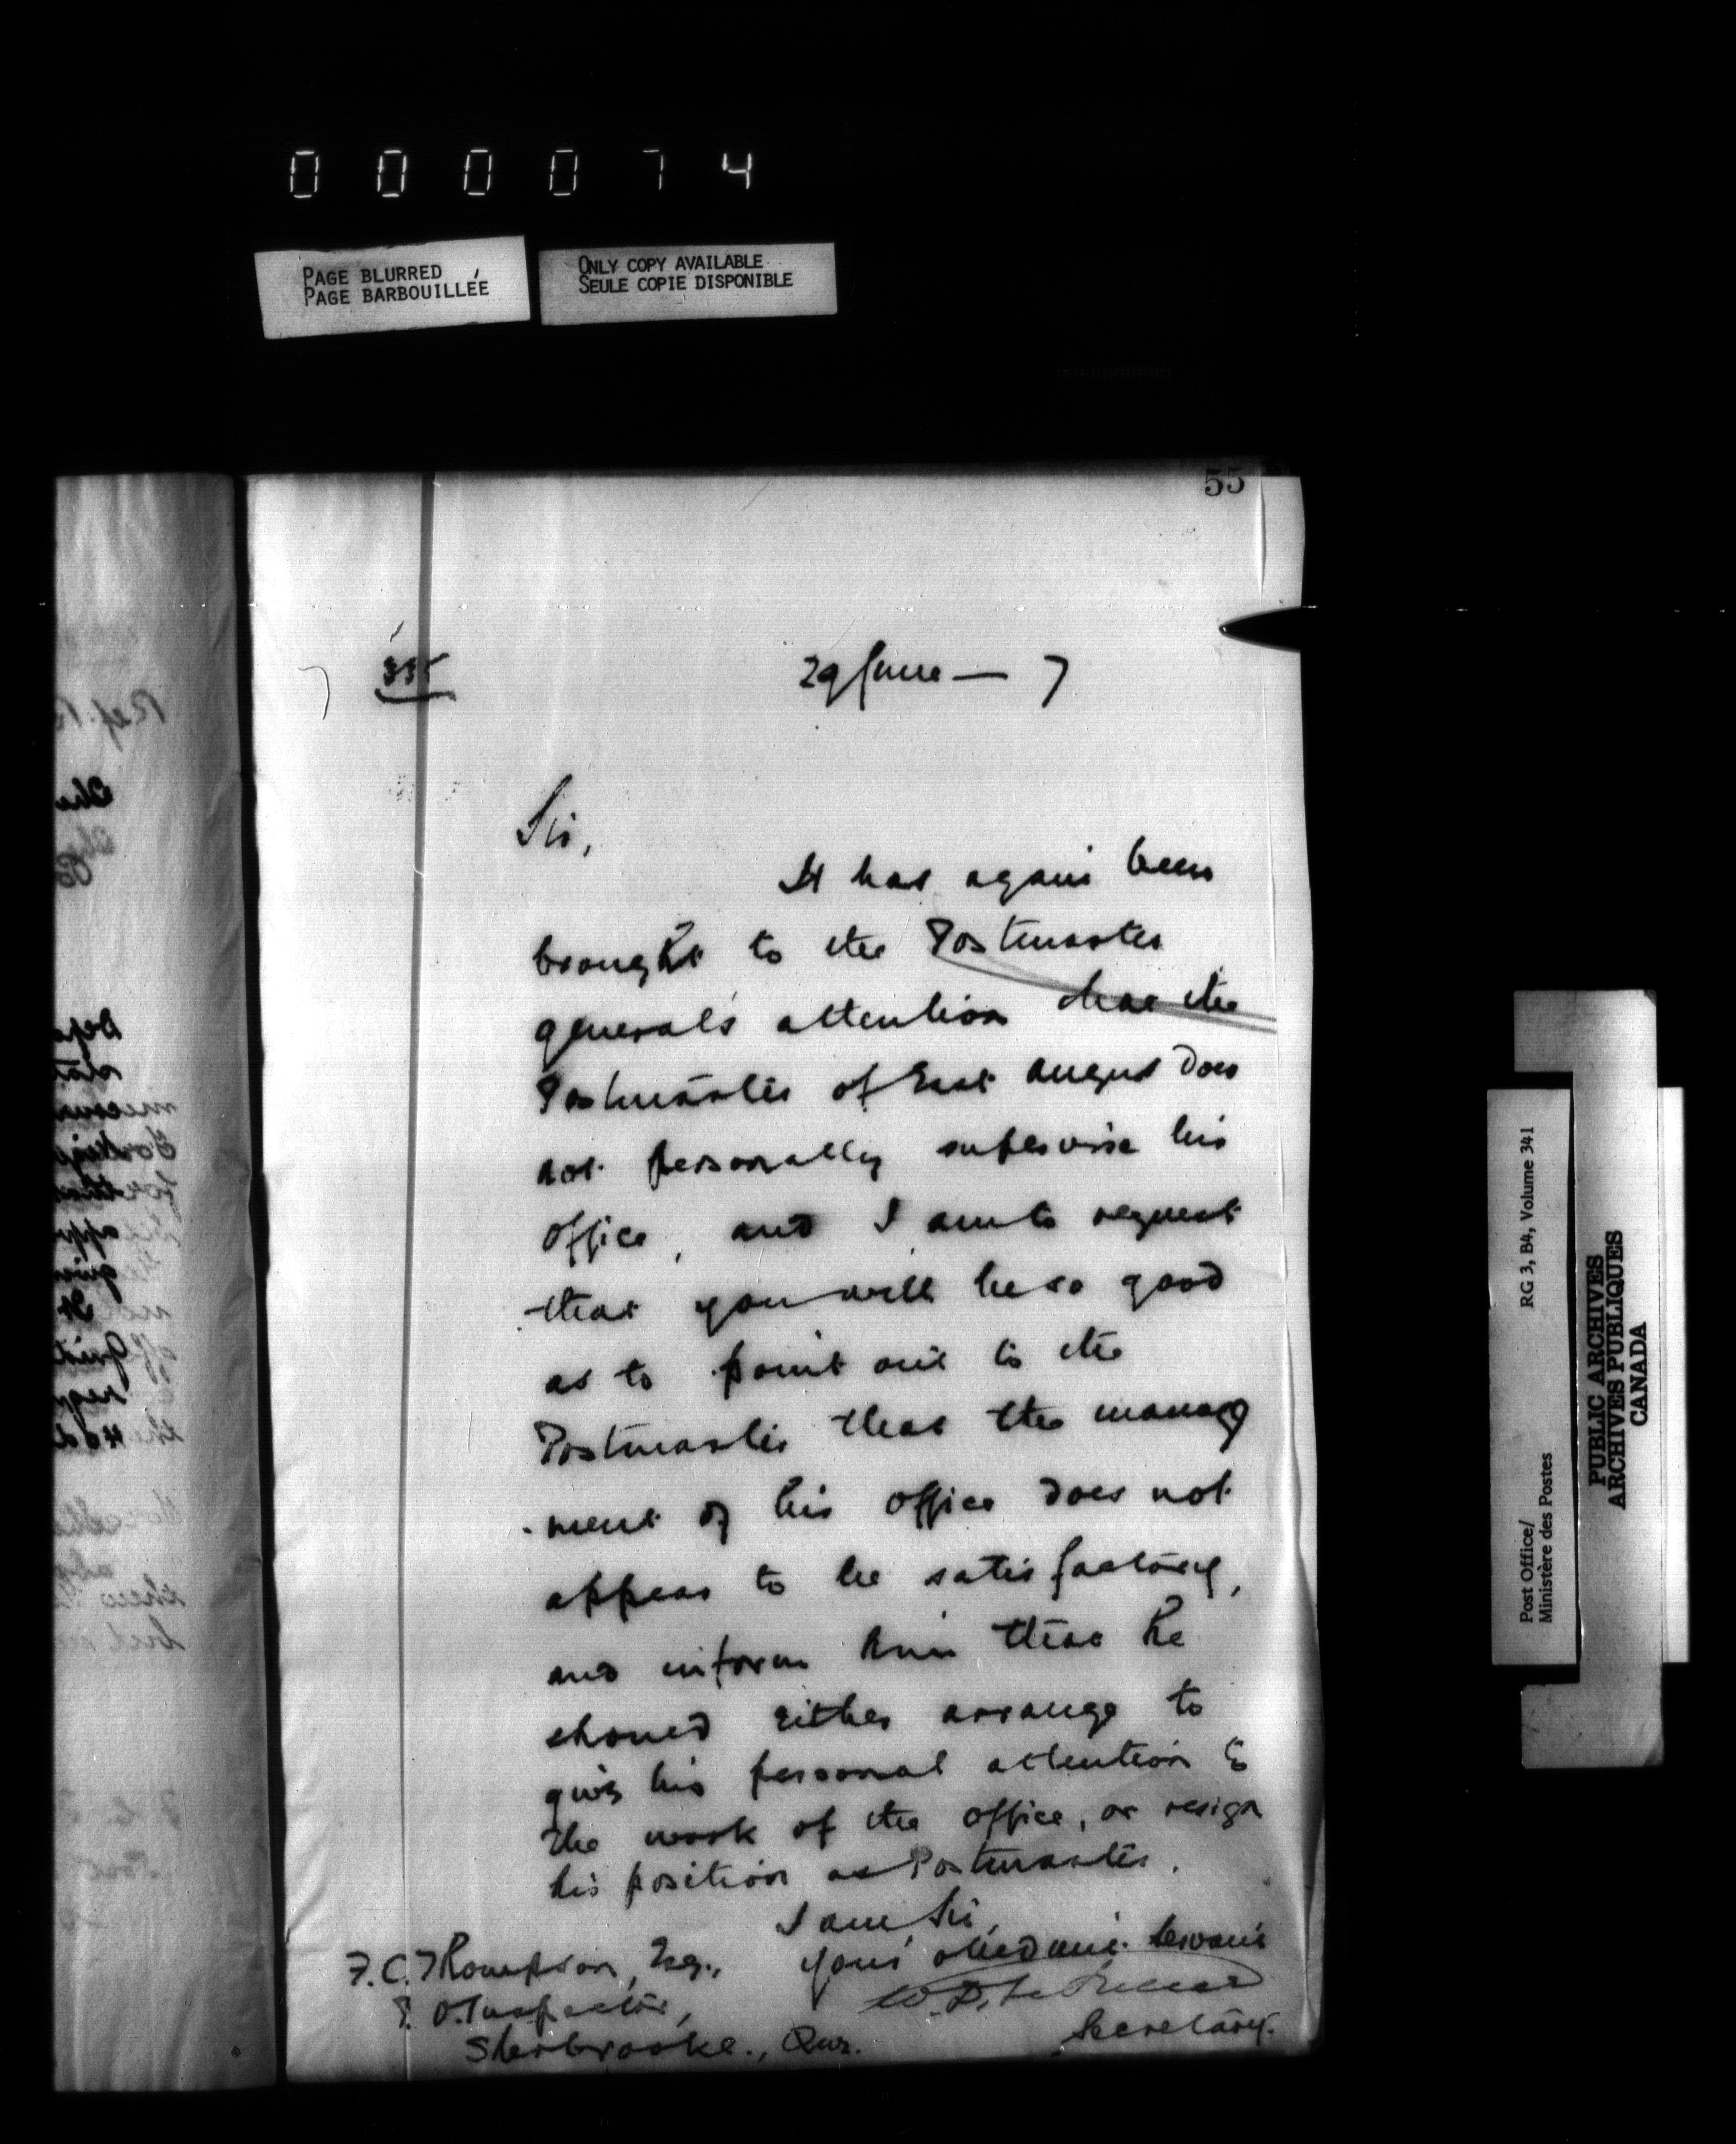 000074
PAGE BLURRED
PAGE BARBOUILLÉE
ONLY COPY AVAILABLE
SEULE COPIE DISPONIBLE
55
29 June — 7
Sir,
It has again been
brought to the Postmaster
general's attention that the
Postmaster of East Angus does
not personally supervise his
office, and I am to request
that you will be so good
as to point out to the
Postmaster that the manage
ment of his office does not
appear to be satisfactory,
and inform him that he
should either arrange to
give his personal attention to
the work of the office, or resign
his position as Postmaster.
I am Sir,
Your obedient Servant
Secretary.
F. C. Thompson, Esq.,
P. O. Inspector,
Sherbrooke., Que.
Post Office/
Ministère des Postes
RG 3, B4, Volume 341
PUBLIC ARCHIVES
ARCHIVES PUBLIQUES
CANADA